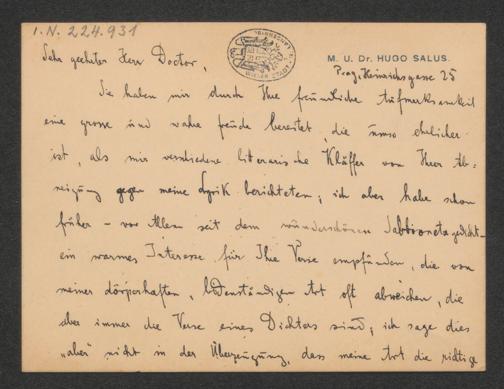 I.N. 224.931
M. U. Dr. HUGO SALUS.
Prag, Heinrichsgasse 25
Sehr geehrter Herr Doctor,
Sie haben mir durch Ihre freundliche Aufmerksamkeit
eine grosse und wahre Freude bereitet, die umso ehrlicher
ist, als mir verschiedene literarische Kläffer von Ihrer Ab-
neigung gegen meine Lyrik berichteten; ich aber habe schon
früher – vor Allem seit dem wunderschönen Sabbionetagedicht –
ein warmes Interesse für Ihre Verse empfunden, die von
meiner dörperhaften, bodenständigen Art oft abweichen, die
aber immer die Verse eines Dichters sind; ich sage dies
„aber" nicht in der Überzeugung, dass meine Art die richtige